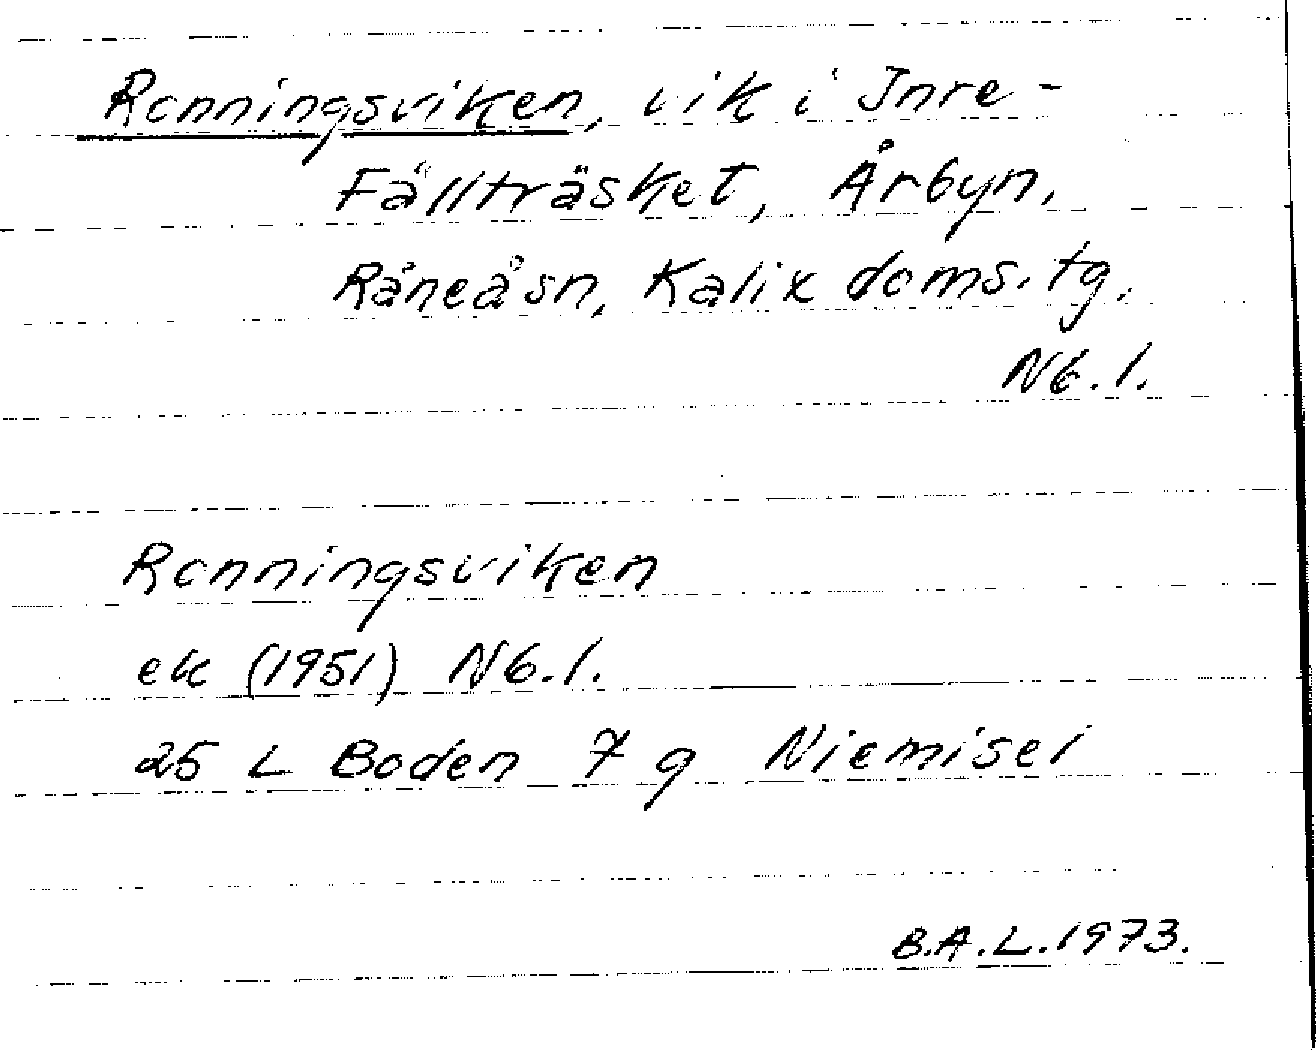 Ronningsviken, vik i Inre-
Fällträsket, Årbyn,
Råneå sn, Kalix doms. tg.
Nb. l.
Ronningsviken
ek (1951) Nb. l.
25 L Boden 7 g Niemisel
B.A.L. 1973.